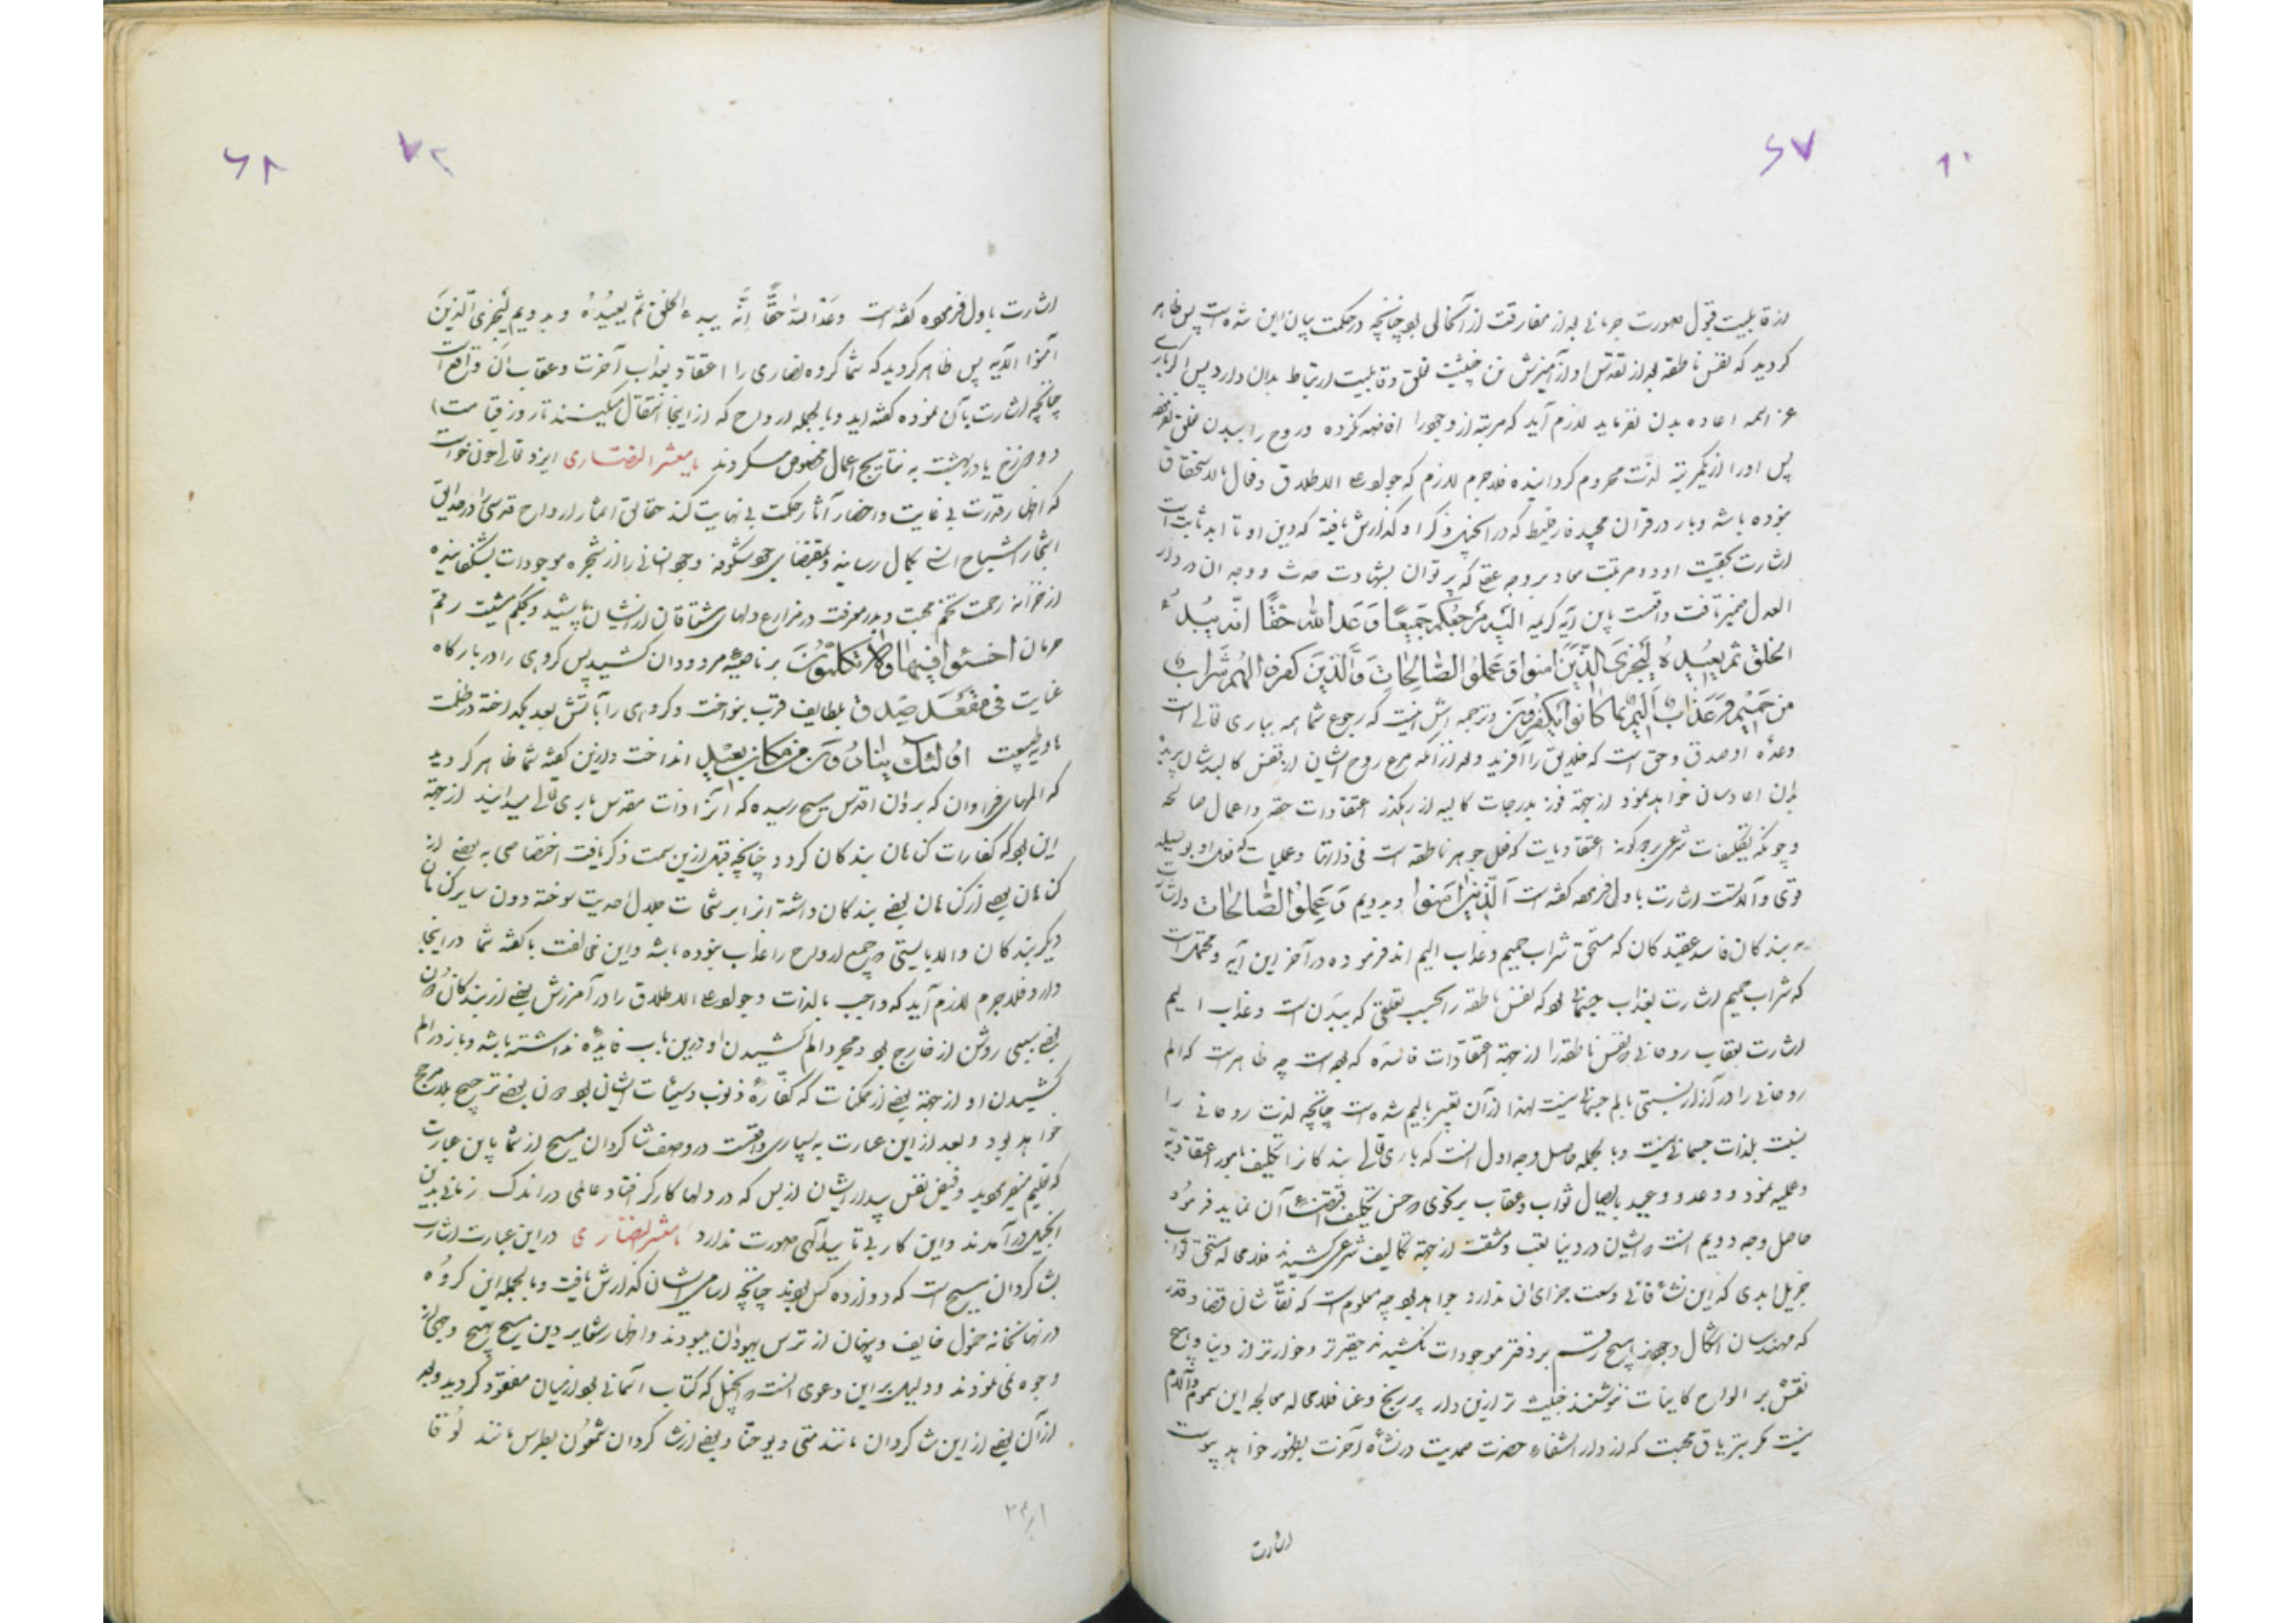 ۶۷
از قابلیت قبول صورت جرمانی بعد از مفارقت از آنخالی بود چنانچه در حکمت بیان این شده است پس ظاهر
کردید که نفس ناطقه بعد از تقدس او از آمیزش تن خیثیت تعلق و قابلیت ارتباط بدان دارد پس اگر باری
عز اسمه اعاده بدن نفرماید لازم آید که مرتبه از وجود را افاضه نکرده و روح را ببدن تعلق
پس او را از یکمرتبه لذت محروم کردانیده فلاجرم لازم که جواد علی الاطلاق و فعال بالاستحقاق
نبوده باشد و بار در قران مجید فارقلیط که در انجیل ذکر او کذارش یافته که دین او تا ابد ثابت است
اشارت بحقیت او دو مرتبت معاد بر وجه عقلی که پرتوان بشهادت حدث و وجه ان در دار
العدل تمیز یافت واقعست باین آیه کریمه الیه مرجعکم جمیعا وعد الله حقا انه یبدء
الخلق ثم یعیده لیجزی الذین امنوا و عملوا الصالحات والذین کفروا لهم شراب
من حمیم و عذاب الیم بما کانوا یکفرون و ترجمه اش اینست که رجوع شما همه بباری تعالی است
وعده او صدق و حق است که خلایق را آفرید و بعد از آنکه مرغ روح ایشان از قفس کالبدشان پریده
بدان اعادشان خواهد نمود از جهة فوز بدرجات عالیه از رهکذر اعتقادات حقه و اعمال صالحه
و چونکه تکلیفات شرعی بر دو کونه اعتقادیات که فعل جوهر ناطقه است فی ذاتها و عملیات که فعل او بوسیله
قوی و آلاتست اشارت باول فرموده کفته است الذین امنوا و بدویم و عملوا الصالحات و اشارت
به بندکان فاسد عقیدکان که مستحق شراب حمیم و عذاب الیم اند فرموده در آخر این آیه و محتمل است
که شراب حمیم اشارت بعذاب جسمانی بود که نفس ناطقه را بحسب تعلقی که ببدنست و عذاب الیم
اشارت بعقاب روحانی نفس ناطقه را از جهة اعتقادات فاسده که بوده است چه ظاهرست که الم
روحانی را در آزار نسبتی بالم جسمانی نیست لهذا از آن تعبیر بالیم شده است چنانچه لذت روحانی را
نسبت بلذات جسمانی نیست و بالجمله حاصل وجه اول انست که باری تعالی بندکانرا تکلیف بامور اعتقادیه
و عملیه نمود و وعد و وعید بایصال ثواب و عقاب بر نحوی که حسن تکلیف اقتضاء آن نماید فرمود
حاصل وجه دویم انست که ایشان در دنیا تعب و مشقت از جهة تکالیف شرعی کشیدند فلامحاله مستحق ثواب
جزیل ابدی که این نشأء فانی وسعت جزای ان ندارد خواهد بود چه معلوم است که نقاشان قضا و قدر
که مهندسان اشکال وجودند هیچ رقم بر دفتر موجودات نکشیدند حقیرتر و خوارتر از دنیا و هیچ
نقش بر الواح کاینات ننوشتند خبیث تر ازین دار پر رنج و عنا فلامحاله معالجه این سموم و آلام
نیست مکر بتریاق محبت که از دار الشفاء حضرت صمدیت در نشأه آخرت بظهور خواهد پیوست
اشارت
۶۸
۷۲
اشارت باول فرموده کفته است وعد الله حقا انه یبدء الخلق ثم یعیده و بدویم لیجزی الذین
آمنوا الآیه پس ظاهر کردید که شما کروه نصاری را اعتقاد بعذاب آخرت و عقاب آن واقع است
چنانچه اشارت بآن نموده کفته اید و بالجمله ارواح که از اینجا انتقال میکینند تا روز قیامت
دوزخ یا در بهشت به نتایج اعمال مخصوص میکردند یا معشر النصاری ایزد تعالی چون خواست
که اظهار قدرت بی غایت و احضار آثار حکمت بی نهایت کند حقایق اثمار ارواح قدسی را در حدایق
اشجار اشباح انسی بکمال رسانیده و بمقتضای جود شکوفه وجود انسانی را از شجره موجودات بشکفانیده
از خزانه رحمت تخم محبت و بذر معرفت در مزارع دلهای مشتاقان ایشان پاشید و بحکم مشیت رقم
حرمان اخسئوا فیها ولا تکلمون بر ناصیه مردودان کشید پس کروهی را در بارکاه
عنایت فی مقعد صدق بلطایف قرب بنواخت و کروهی را بآتش بعد بکداخته در ظلمت
هاویه طبیعت اولئک ینادون من مکان بعید انداخت و ازین کفته شما ظاهر کردید
که المهای فراوان که بر ذات اقدس مسیح رسیده که انرا ذات مقدس باری تعالی میدانید از جهة
این بود که کفارات کناهان بندکان کردد چنانچه قبل ازین سمت ذکر یافت اختصاصی به بعضی از
کناهان بعضی از کناهان بعضی بندکان داشته انرا برشحات جلال احدیت سوخته دون سایر کناهان
دیکر بندکان والا بایستی جمع ارواح را عذاب نبوده باشد و این مخالفت با کفته شما در اینجا
دارد فلاجرم لازم آید که واجب بالذات و جواد علی الاطلاق را در آمرزش بعضی از بندکان دون
بعضی سببی روشن از خارج بود و مجرد الم کشیدن او درین باب فایده نداشته باشد و باز در الم
کشیدن او از جهة بعضی از ممکنات که کفاره ذنوب و سیئات ایشان بود دون بعضی ترجیح بلامرجح
خواهد بود و بعد از این عبارت به بسیاری واقعست در وصف شاکردان مسیح از شما باین عبارت
که تعلیم منفر کوید و فیض نفس بیدار ایشان از بس که در دلها کارکر افتاد عالمی در اندک زمانی بدین
انجیل در آمدند و این کار بی تایید آلهی صورت ندارد یا معشر النصاری در این عبارت اشارت
بشاکردان مسیح است که دوازده کس بودند چنانچه اسامی ایشان کذارش یافت و بالجمله این کروه
در نهانخانه خمول خایف و پنهان از ترس یهودان میبودند و اظهار شعایر دین مسیح بهیچ وجهی از
وجوه نمی نمودند و دلیل بر این دعوی انست که انجیل که کتاب آسمانی بود از میان مفقود کردید و بعد
از آن بعضی از این شاکردان مانند متی و یوحنا و بعضی از شاکردان شمعون بطرس مانند لوقا